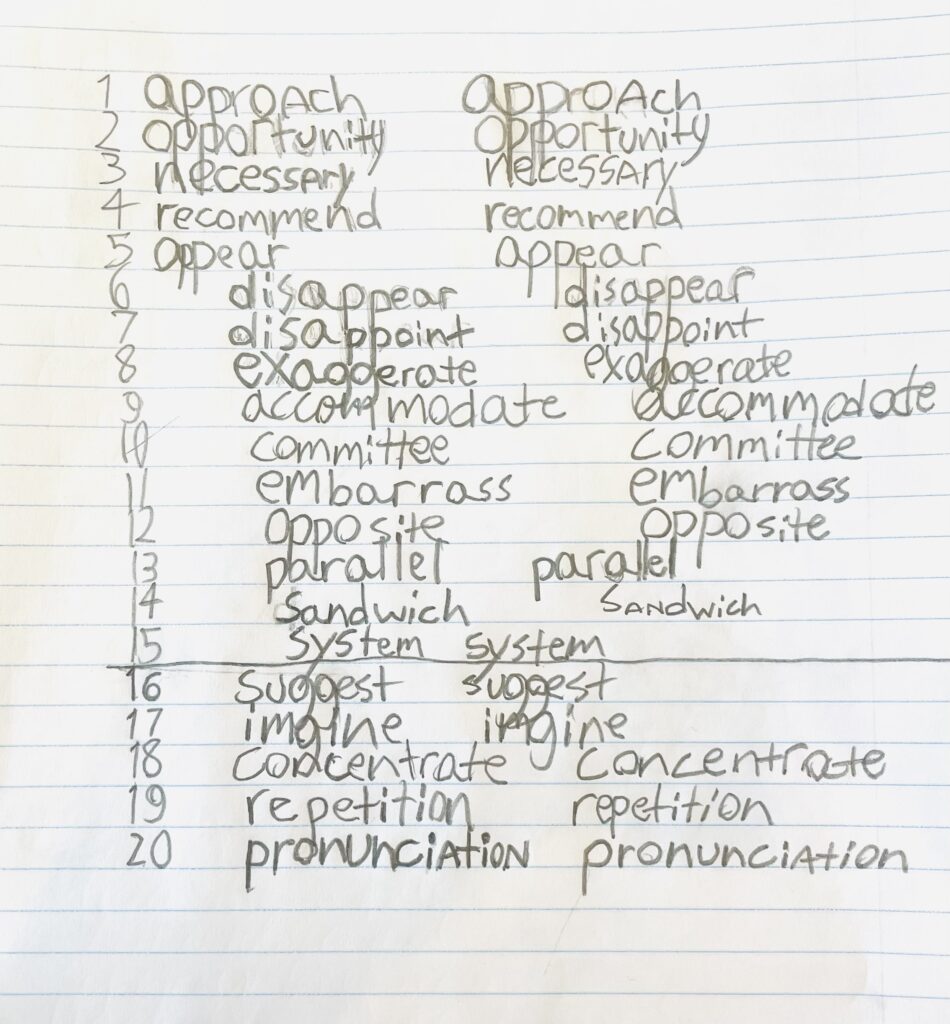 1 approach approach
2 opportunity opportunity
3 necessary necessary
4 recommend recommend
5 appear appear
6 disappear disappear
7 disappoint disappoint
8 exaggerate exaggerate
9 accommodate accommodate
10 committee committee
11 embarrass embarrass
12 opposite opposite
13 parallel parallel
14 sandwich sandwich
15 system system
16 suggest suggest
17 imgine imgine
18 concentrate concentrate
19 repetition repetition
20 pronunciation pronunciation